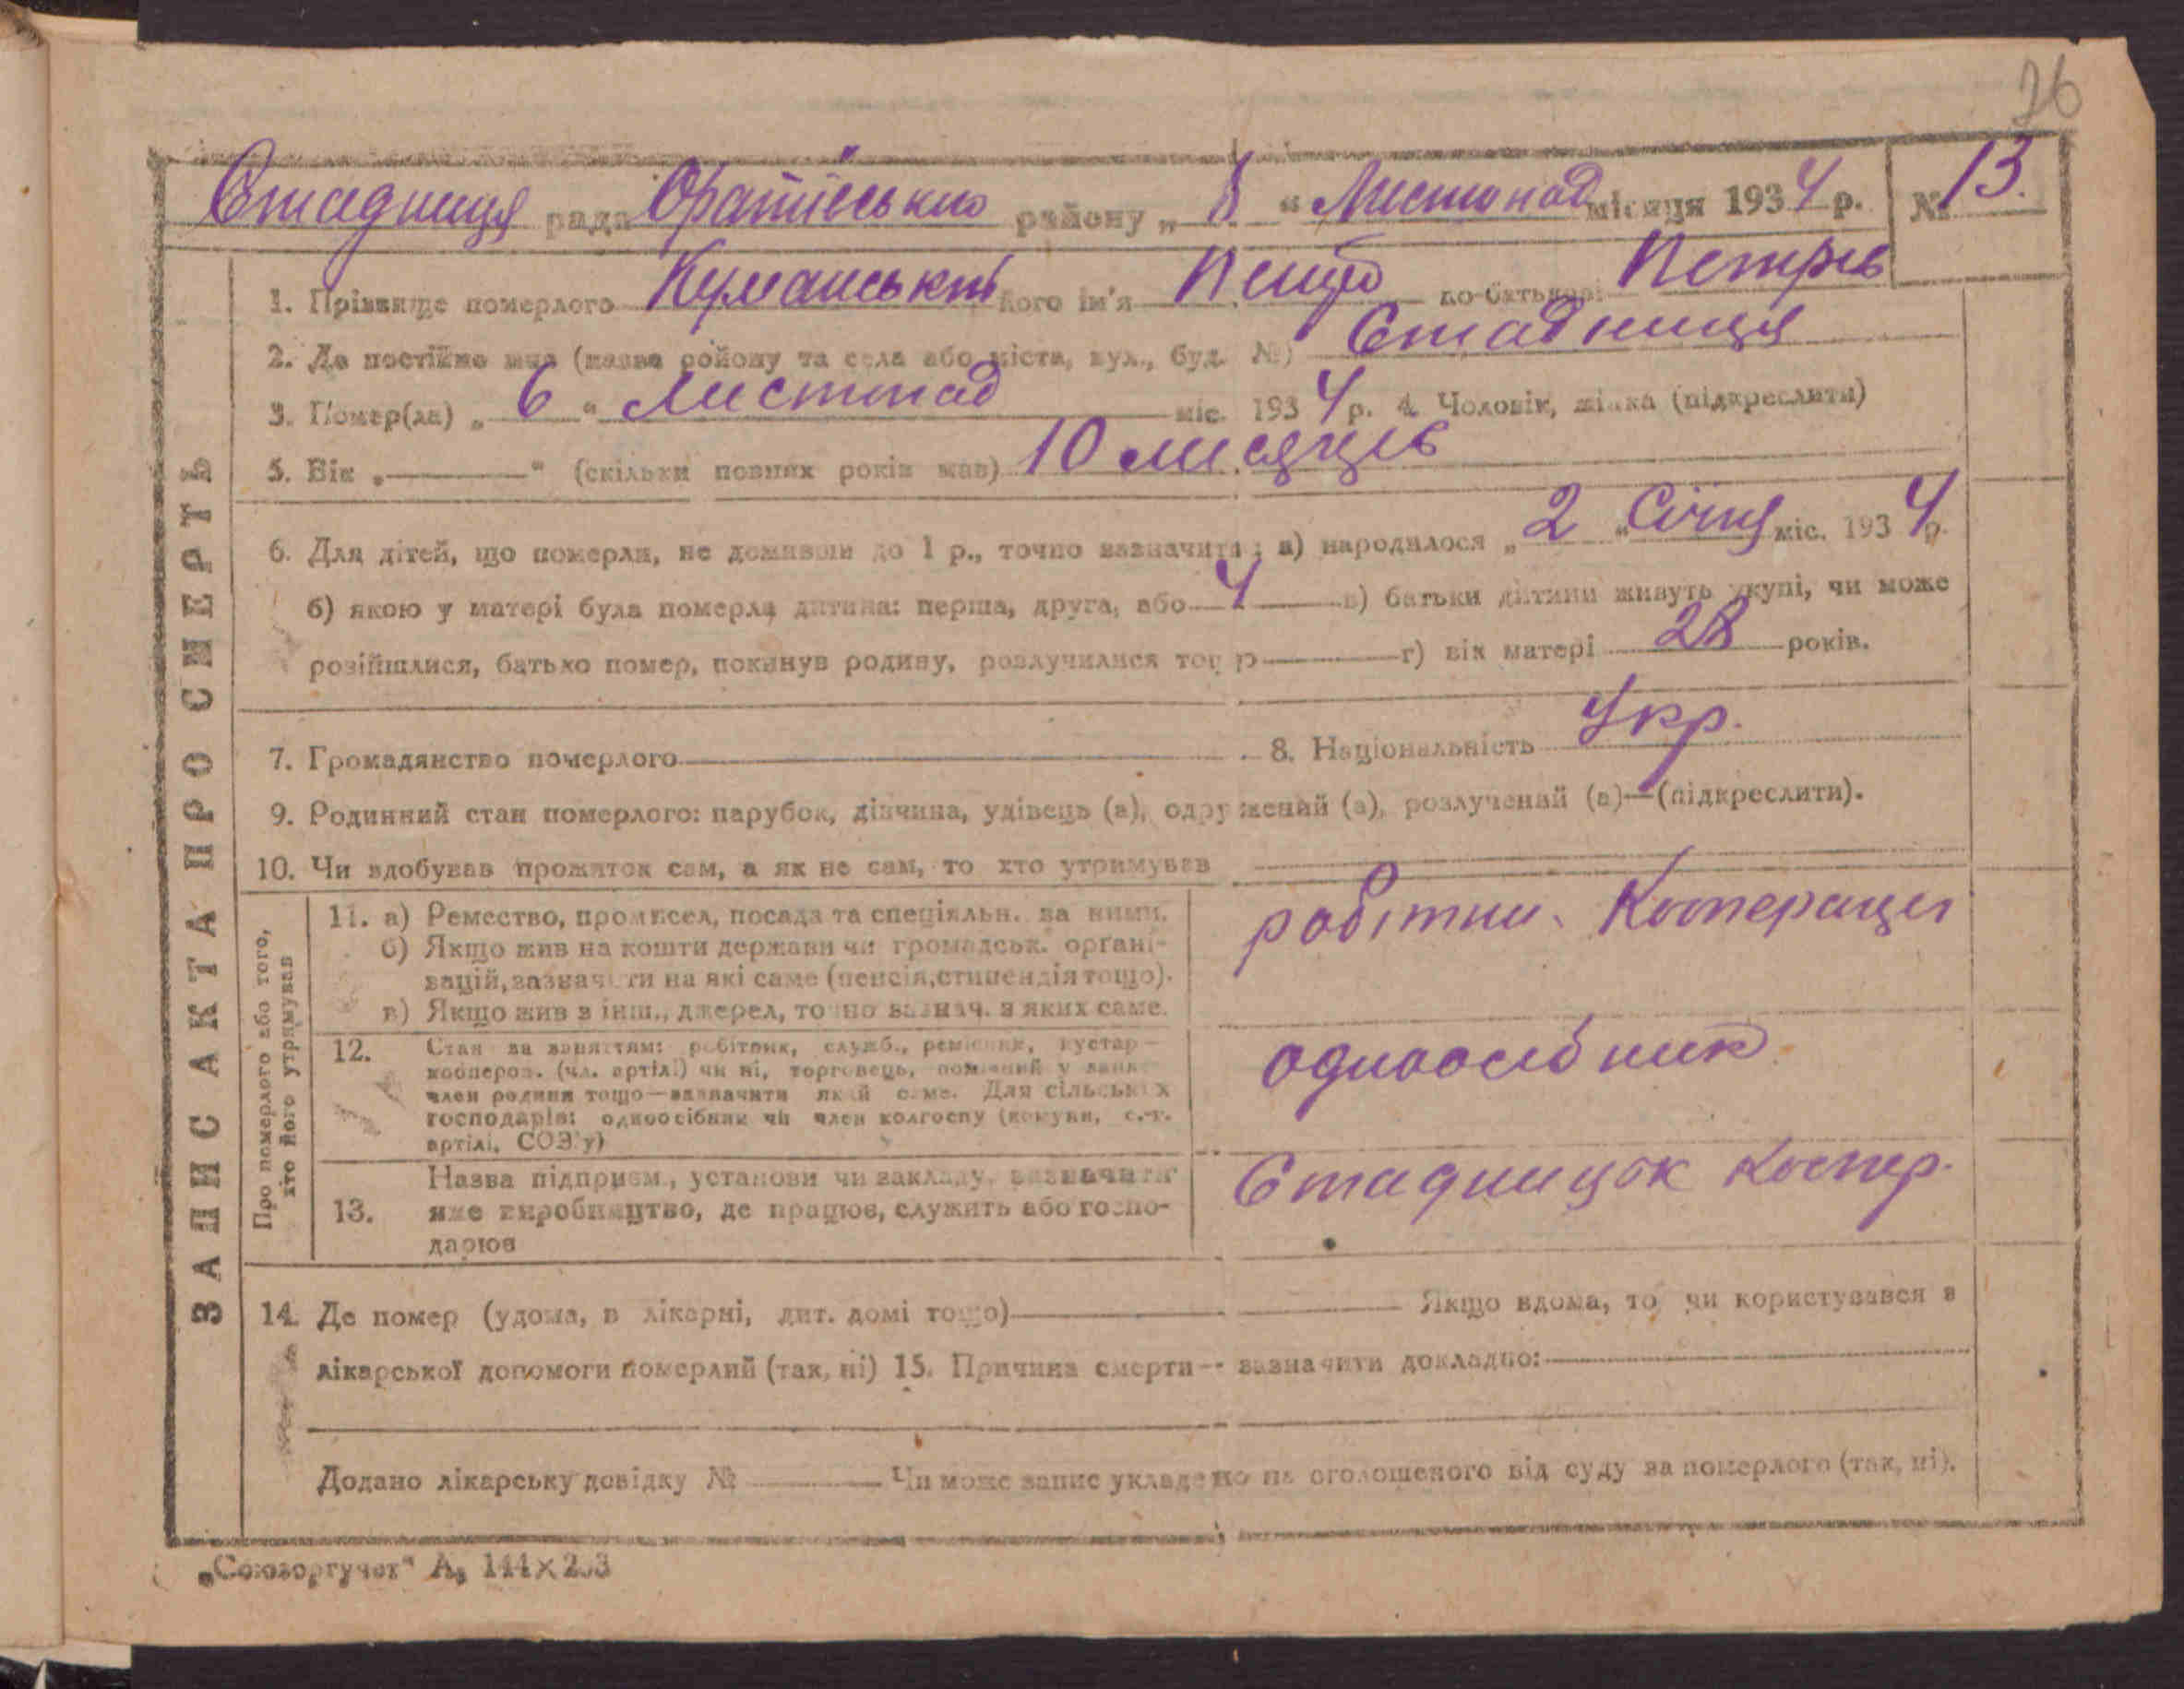 26
Стадниця рада Оратівсько району „ 8 “ Листопад місяця 1934 р. № 13.
ЗАПИС АКТА ПРО СМЕРТЬ
1. Прізвище померлого Куманський його ім'я по-батькові Петрів
2. Де постійно жив (назва району та села або міста, вул., буд. №) Стадниця
3. Помер(ла) „ 6 “ Листопад міс. 1934 р. 4. Чоловік, жінка (підкреслити)
5. Вік „ “ (скільки повних років мав) 10 місяців
6. Для дітей, що померли, не доживши до 1 р., точно зазначити: а) народилося „ 2 “ Січня міс. 1934 р.
б) якою у матері була померла дитина: перша, друга, або 4 в) батьки дитини живуть укупі, чи може
розійшлися, батько помер, покинув родину, розлучилися тощо г) вік матері 28 років.
7. Громадянство померлого 8. Національність Укр.
9. Родинний стан померлого: парубок, дівчина, удівець (а), одружений (а), розлучений (а)—(підкреслити).
10. Чи здобував прожиток сам, а як не сам, то хто утримував
Про померлого або того,
хто його утримував
11. а) Ремество, промисел, посада та спеціяльн. за ними.
б) Якщо жив на кошти держави чи громадськ. органі-
зацій, зазначити на які саме (пенсія, стипендія тощо).
в) Якщо жив з інш., джерел, точно зазнач. з яких саме.
робітни. Кооперации
12. Стан за заняттям: робітник, служб., ремісник, кустар—
кооперов. (чл. артілі) чи ні, торговець,
член родини тощо—зазначити який саме. Для сільських
господарів: одноосібник чи член колгоспу (комуни, с.-г.
артілі, СОЗ'у)
одноосібник
13. Назва підприєм., установи чи закладу, зазначити
яке виробництво, де працює, служить або госпо-
дарює
Стадницьк коопер.
14. Де помер (удома, в лікарні, дит. домі тощо) Якщо вдома, то чи користувався з
лікарської допомоги померлий (так, ні) 15. Причина смерти— зазначити докладно:
Додано лікарську довідку № Чи може запис укладено на оголошеного від суду за померлого (так, ні).
„Союзоргучет“ А₅ 144×203